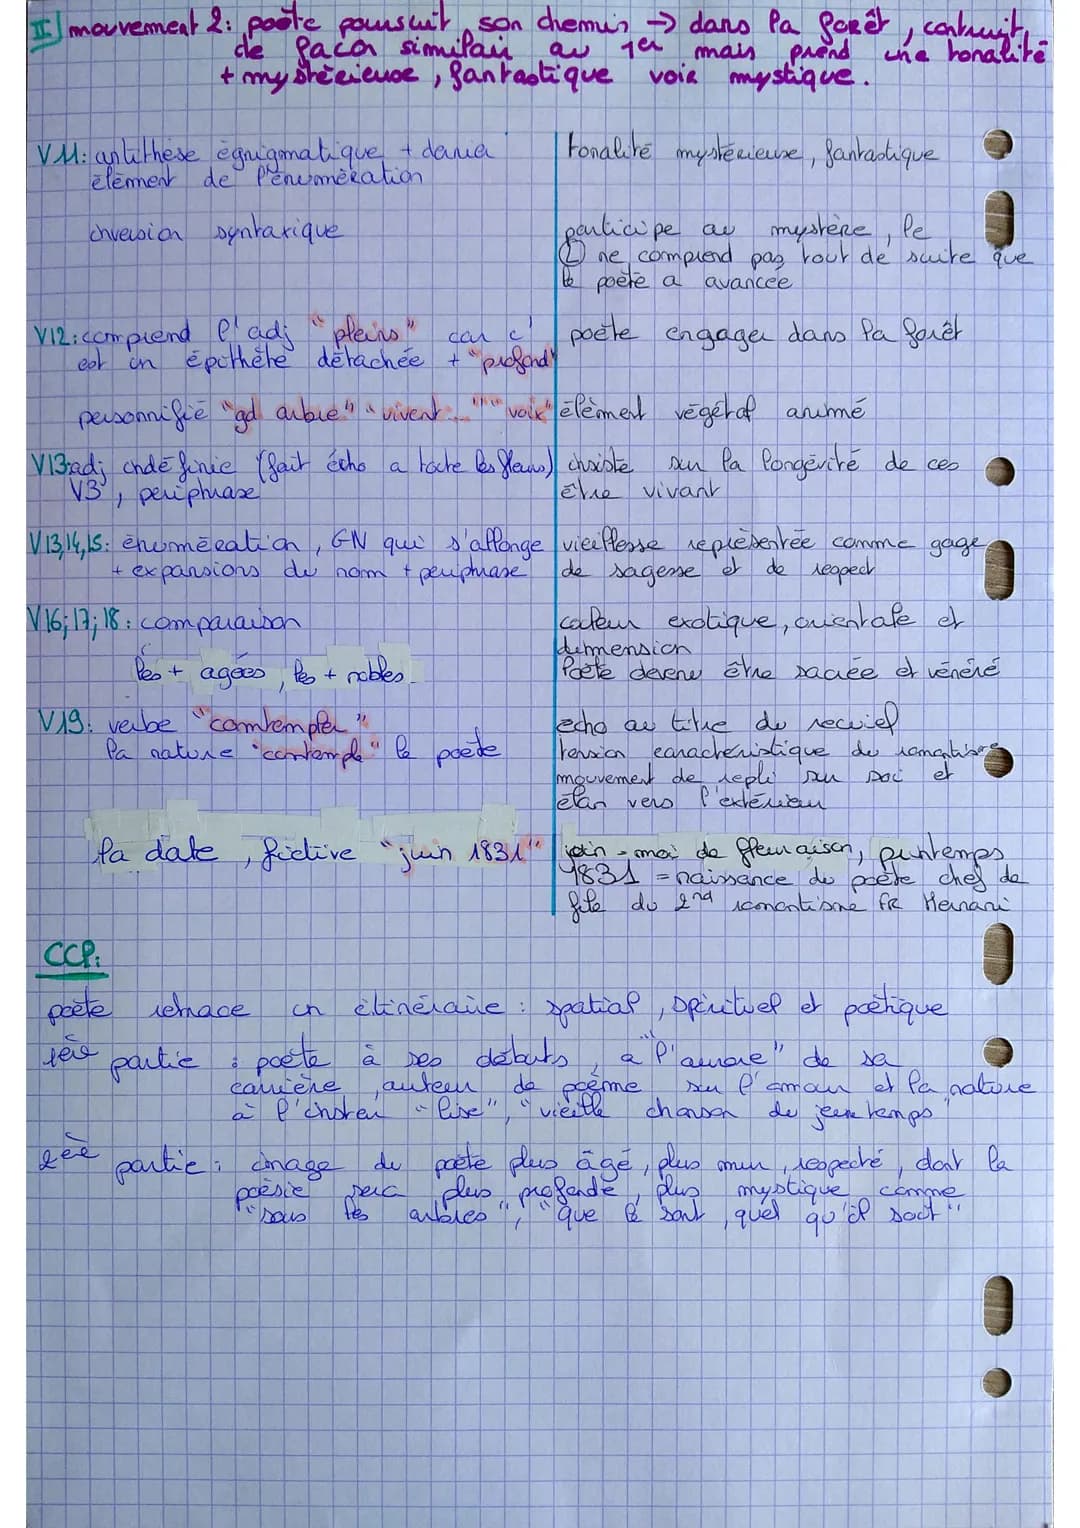 II mouvement 2: poète poursuit son chemin → dans la forêt, contruit,
de façon similair au 1er mais prend une tonalité
+ mystérieuse, fantastique voir mystique.
V11: antithèse égnigmatique + dernier
élèment de l'énumération
tonalité mystérieuse, fantastique
inversion syntaxique
participe au mystère, le
Ⓛ ne comprend pas tout de suite que
le poète a avancée
V12: comprend l'adj "pleins" car c'
est un épithète détachée + "profond"
poète engager dans la forêt
personnifié "gd arbre" "vivent..." "voix"
élèment végétal animé
V13: adj indéfinie (fait écho a toute les fleurs)
V3, periphrase
insiste sur la longévité de ces
être vivant
V13,14,15: énumération, GN qui s'allonge
+ expansions du nom + periphrase
vieillesse représentée comme gage
de sagesse et de respect
V16;17;18: comparaison
couleur exotique, orientale et
dimension
les + agées, les + nobles
Poète devenu être sacrée et vénéré
V19: verbe "comtempler"
la nature "contemple" le poète
echo au titre du recueil
tension caractéristique du romantisme
mouvement de repli sur soi et
élan vers l'extérieur
la date, fictive "juin 1831"
juin = moi de fleuraison, printemps
1831 = naissance du poète chef de
file du 2nd romantisme FR Hernani
CCP:
poète retrace un itinéraire : spatial, spirituel et poétique
1ère partie : poète à ses débuts, a "l'aurore" de sa
carrière, auteur de poème sur l'amour et la nature
à l'instar "lise", "vieille chanson du jeune temps"
2èe partie : image du poète plus âgé, plus mur, respecté, dont la
poèsie sera plus profonde, plus mystique comme
"sous les arbres", "que le sort, quel qu'il soit"